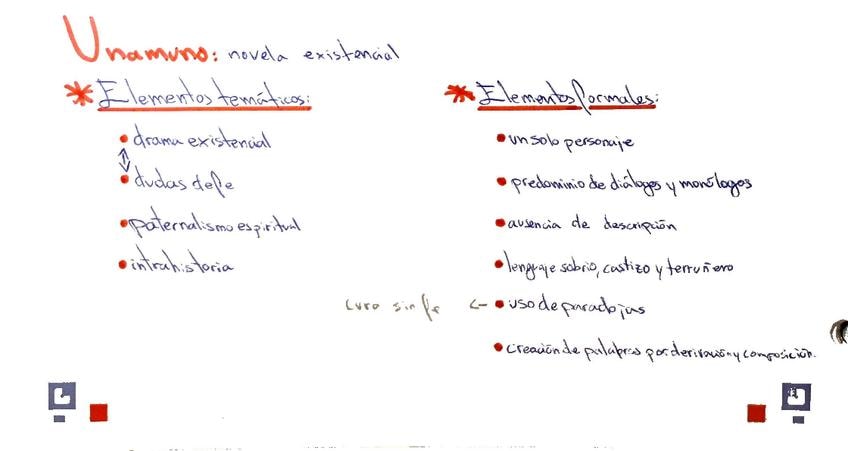 Unamuno: novela existencial
* Elementos temáticos:
• drama existencial
• dudas de fe
• paternalismo espiritual
• intrahistoria
* Elementos formales:
• un solo personaje
• predominio de diálogos y monólogos
• ausencia de descripción
• lenguaje sobrio, castizo y terruñero
cura sin fe <- • uso de paradojas
• creación de palabras por derivación y composición.